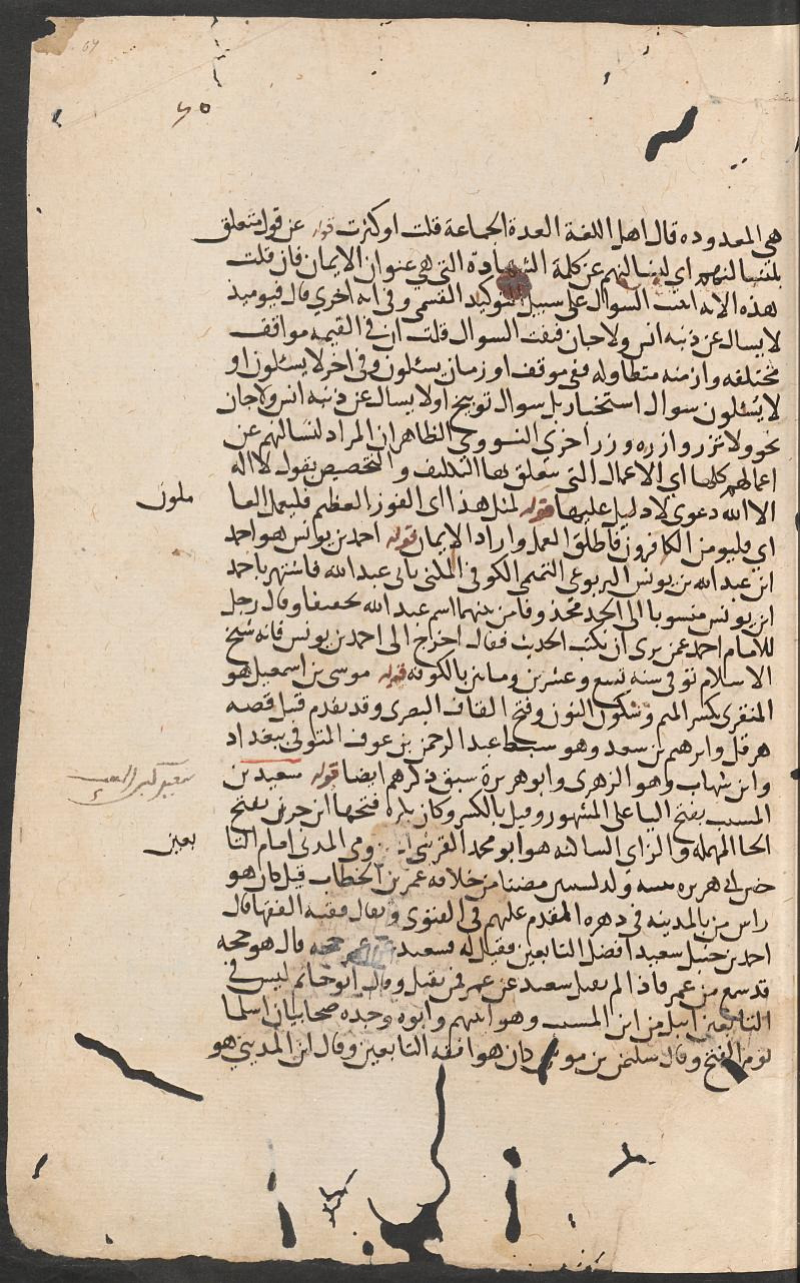 64
٤٥
هي المعدوده قال اهل اللغة العدة الجماعة قلت او كثرت قوله عن قول متعلق
بلنسالنهم اي لنسالنهم عن كلمة الشهادة التي هي عنوان الايمان فان قلت
هذه الايه اثبت السوال على سبيل التوكيد القسمى وفي ايه اخري قال فيوميذ
لا يسال عن ذنبه انس ولا جان فنفت السوال قلت ان في القيمه مواقف
مختلفه وازمنه متطاوله ففي موقف او زمان يسئلون وفي اخر لا يسئلون او
لا يسئلون سوال استخبار بل سوال توبيخ او لا يسال عن ذنبه انس ولا جان
نحو ولا تزر وازره وزر اخري النووي الظاهر ان المراد لنسالنهم عن
اعمالهم كلها اي الاعمال التي يتعلق بها التكليف والتخصيص بقول لا اله
الا الله دعوي لا دليل عليها قوله لمثل هذا اي الفوز العظيم فليعمل العا
ملون
اي فليومن الكافرون فاطلق العمل واراد الايمان قوله احمد بن يونس هو احمد
ابن عبد الله بن يونس اليربوعي التميمي الكوفي المكنى بابي عبد الله فاشتهر باحمد
ابن يونس منسوبا الى الجد محذوفا من بينهما اسم عبد الله تخفيفا وقال رجل
للامام احمد عمن يرى ان نكتب الحديث فقال اخرج الى احمد بن يونس فانه شيخ
الاسلام توفى سنه تسع وعشرين ومايتين بالكوفه قوله موسى بن اسمعيل هو
المنقري بكسر الميم وسكون النون وفتح القاف البصرى وقد تقدم قبل قصه
هرقل وابرهيم بن سعد وهو سبط عبد الرحمن بن عوف المتوفي ببغداد
وابن شهاب وهو الزهرى وابو هريرة سبق ذكرهم ايضا قوله سعيد بن
المسيب بفتح اليا على المشهور وقيل بالكسر وكان يكره فتحها ابن حزن بفتح
الحا المهمله والزاي الساكنه هو ابو محمد القرشي ... ومى المدنى امام التا
بعين
ختن ابى هريره ... ولد لسنتين مضتا من خلافه عمر بن الخطاب قيل كان هو
راس من بالمدينه في دهره المقدم عليهم في الفتوى ويقال فقيه الفقها قال
احمد بن حنبل سعيد افضل التابعين فقيل له فسعيد عن عمر حجه قال هو حجه
قد سمع من عمر فاذا لم يقبل سعيد عن عمر فمن يقبل وقال ابو حاتم ليس في
التابعين انبل من ابن المسيب وهو اثبتهم وابوه وجده صحابيان اسلما
يوم الفتح وقال سليمن بن موسى كان هو افقه التابعين وقال ابن المديني هو